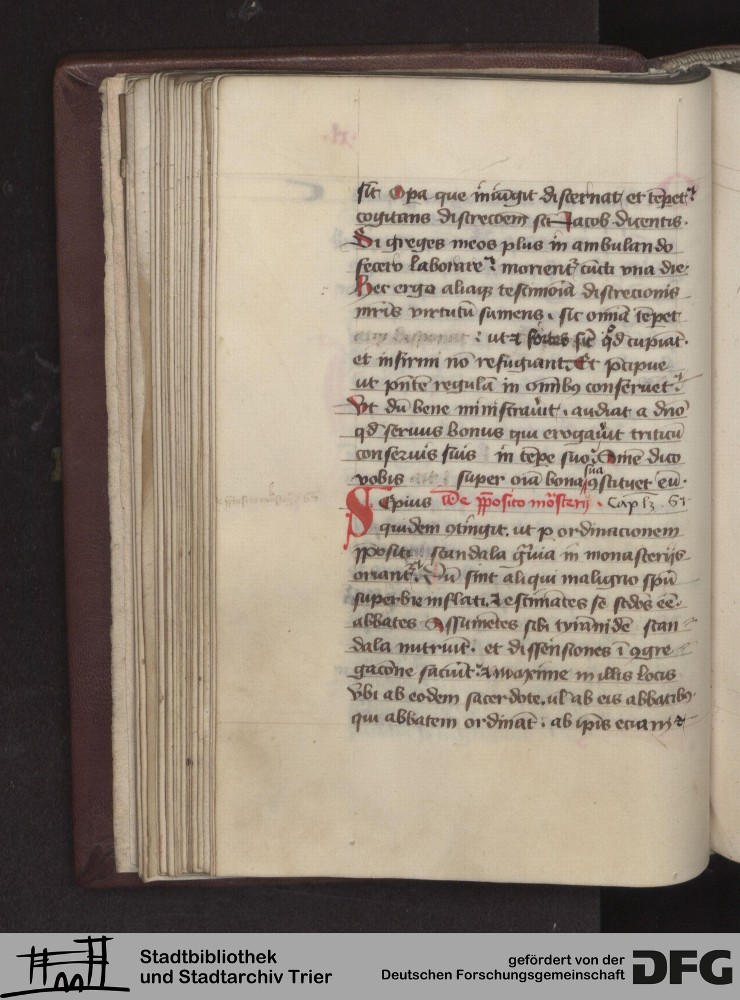 sit Opa que iniu̅git discernat et te̅pet
cogitans discreco̅em sci̅ Jacob dicentis.
Si greges meos plus in ambulando
fecero laborare: morient̉ cu̅cti vna die.
Hec ergo aliaqꝫ testimonia discrecionis
mr̅is virtutu̅ sumens. sic omnia te̅pet
ut ⁊ fortes sit qͦd cupiat.
et infirmi no̅ refugiant. Et p̅cipue
ut pn̅te regula̅ in om̅ibꝫ conseruet.
Vt du̅ bene ministrau̅it. audiat a dn̅o
qd̅ seruus bonus qui erogau̅it triticu̅
conseruis suis in te̅pe suo. Ame̅ dico
vobis super oi̅a bona sua ꝯstituet eu̅.
Sepius De p̅posito mo̅sterij. Cap̅lꝫ. 61
quidem ꝯtingit. ut p ordinacionem
p̅positi scandala gͣuia in monasterijs
oriant̉. Du̅ sint aliqui maligno sp̅u
superbie inflati. ⁊ estimates se sc̅dos e̅e.
abbates Assume̅tes sibi tyra̅nide̅ scan
dala nutriu̅t. et dissensiones i̅ ꝯgre
gaco̅ne faciu̅t. ⁊ maxime in illis locis
vbi ab eodem sacerdote. ul̅ ab eis abbatibꝫ
qui abbatem ordina̅t. ab ip̅is ecia̅m ⁊
Stadtbibliothek
und Stadtarchiv Trier
gefördert von der
Deutschen Forschungsgemeinschaft
DFG